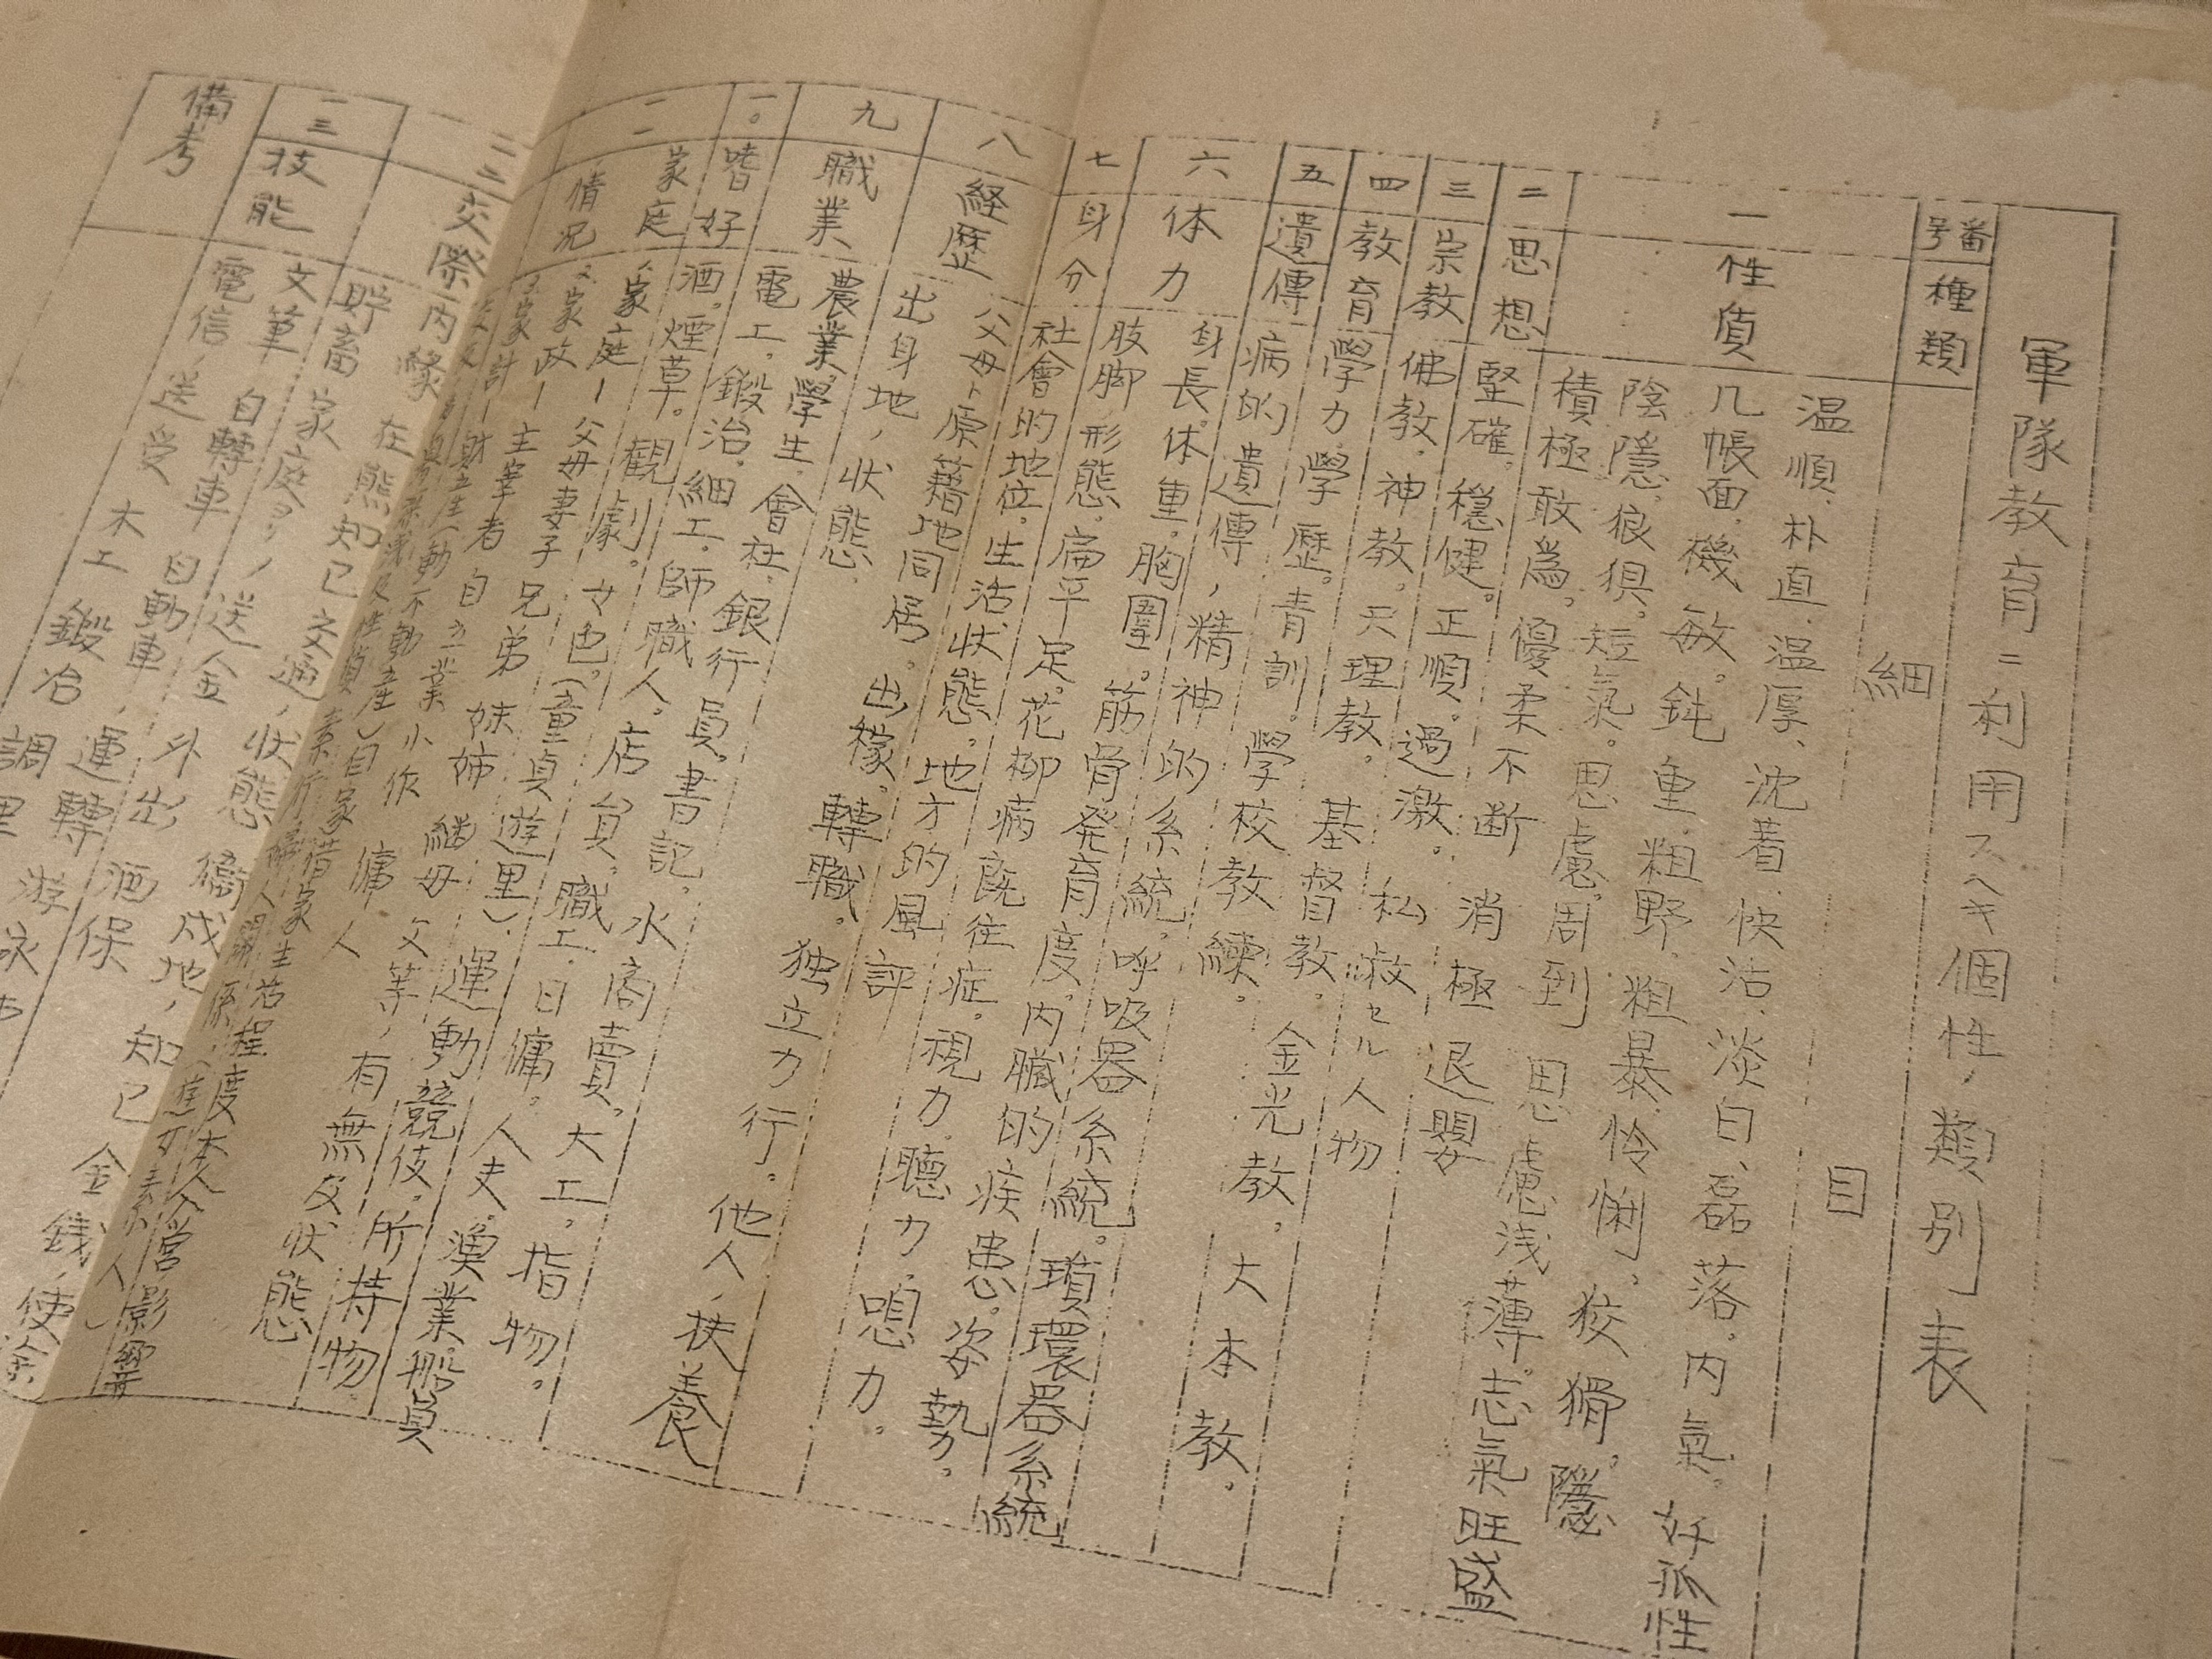 軍隊教育ニ利用スヘキ個性ノ類別表
番号
種類
細目
一
性質
温順、朴直、温厚、沈着、快活、淡白、磊落、内氣、好孤性
几帳面、機敏。鈍重、粗野、粗暴、怜悧、狡猾、隱
陰隱、狼狽。短氣。思慮周到 思慮浅薄。志氣旺盛
積極敢為。優柔不断 消極退嬰
二
思想
堅確、穏健。正順。過激。
三
宗教
佛教、神教。天理教。基督教、金光教。大本教。
四
教育
學力、學歴。青訓。學校教練。
五
遺傳
病的遺傳、精神的系統。
六
体力
身長。体重。胸圍。筋骨発育度。内臓的疾患。姿勢。
肢脚形態。扁平足。花柳病既往症。視力、聴力、
七
身分
社會的地位。生活状態。地方的風評
八
経歴
父母ト原籍地同居。出稼、轉職。独立力行。他人ノ扶養
出身地ノ状態。
九
職業
農業、學生。會社、銀行員。書記。水商賣。大工。指物。
電工。鍛冶。細工。師職人。店員。職工。日傭。人夫。漁業。船員
一〇
嗜好
酒。煙草。觀劇。女色。(童貞遊里)。運動競技。所持物。
一一
家庭情況
1、家庭ー父母妻子兄弟妹姉 継母父等ノ有無及状態
2、家政ー主宰者 自立業小作 傭人
一二
交際
内縁 在熊知已交通ノ状態 衞戍地ノ知已 金錢ノ使途
貯畜 家庭ヨリノ送金 外出 酒保
一三
技能
文筆 自轉車 自動車ノ運轉
電信ノ送受 木工 鍛冶 調理 游泳
備考